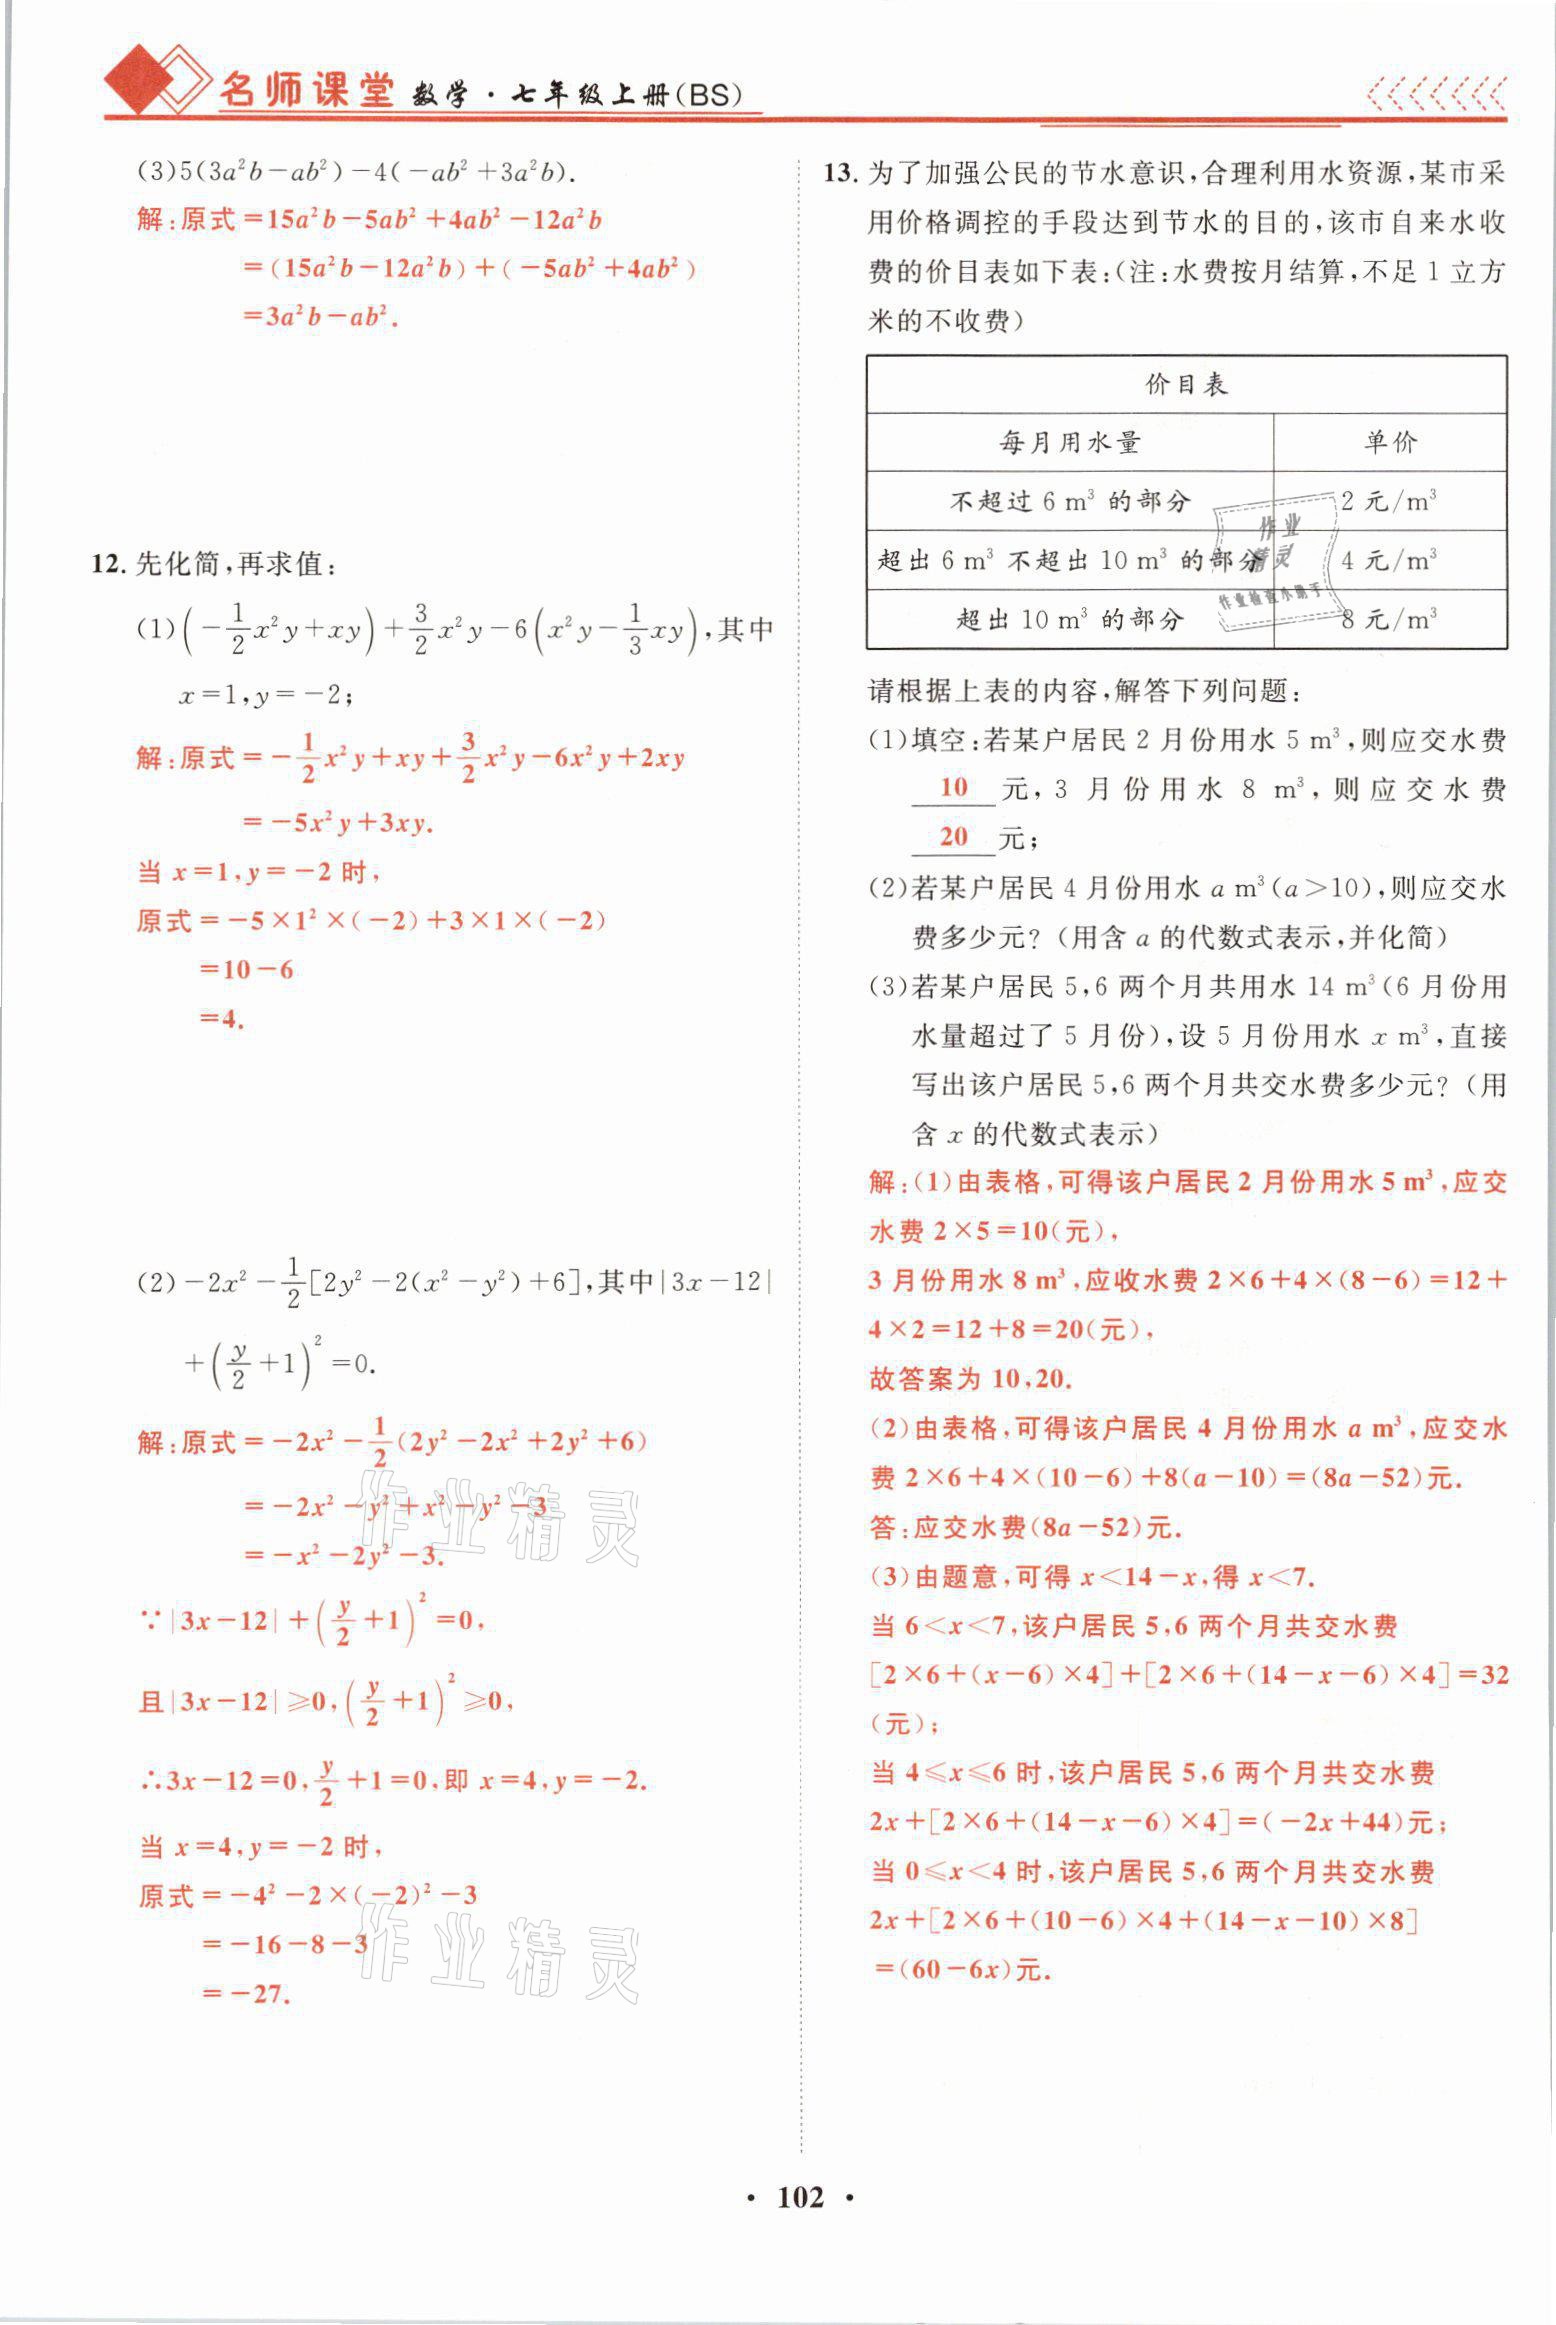 名师课堂 数学·七年级上册(BS)
(3)5(3a²b－ab²)－4(－ab²＋3a²b).
解:原式＝15a²b－5ab²＋4ab²－12a²b
＝(15a²b－12a²b)＋(－5ab²＋4ab²)
＝3a²b－ab².
12. 先化简,再求值:
(1)(－1/2x²y＋xy)＋3/2x²y－6(x²y－1/3xy),其中
x＝1,y＝－2;
解:原式＝－1/2x²y＋xy＋3/2x²y－6x²y＋2xy
＝－5x²y＋3xy.
当 x＝1,y＝－2 时,
原式＝－5×1²×(－2)＋3×1×(－2)
＝10－6
＝4.
(2)－2x²－1/2[2y²－2(x²－y²)＋6],其中|3x－12|
＋(y/2＋1)²＝0.
解:原式＝－2x²－1/2(2y²－2x²＋2y²＋6)
＝－2x²－y²＋x²－y²－3
＝－x²－2y²－3.
∵|3x－12|＋(y/2＋1)²＝0,
且|3x－12|≥0,(y/2＋1)²≥0,
∴3x－12＝0,y/2＋1＝0,即 x＝4,y＝－2.
当 x＝4,y＝－2 时,
原式＝－4²－2×(－2)²－3
＝－16－8－3
＝－27.
作业精灵
作业精灵
13. 为了加强公民的节水意识,合理利用水资源,某市采
用价格调控的手段达到节水的目的,该市自来水收
费的价目表如下表:(注:水费按月结算,不足 1 立方
米的不收费)
价目表
每月用水量 单价
不超过 6 m³ 的部分 2 元/m³
超出 6 m³ 不超出 10 m³ 的部分 4 元/m³
超出 10 m³ 的部分 8 元/m³
作业
精灵
作业检查小助手
请根据上表的内容,解答下列问题:
(1)填空:若某户居民 2 月份用水 5 m³,则应交水费
10 元,3 月份用水 8 m³,则应交水费
20 元;
(2)若某户居民 4 月份用水 a m³(a＞10),则应交水
费多少元?(用含 a 的代数式表示,并化简)
(3)若某户居民 5,6 两个月共用水 14 m³(6 月份用
水量超过了 5 月份),设 5 月份用水 x m³,直接
写出该户居民 5,6 两个月共交水费多少元?(用
含 x 的代数式表示)
解:(1)由表格,可得该户居民 2 月份用水 5 m³,应交
水费 2×5＝10(元),
3 月份用水 8 m³,应收水费 2×6＋4×(8－6)＝12＋
4×2＝12＋8＝20(元),
故答案为 10,20.
(2)由表格,可得该户居民 4 月份用水 a m³,应交水
费 2×6＋4×(10－6)＋8(a－10)＝(8a－52)元.
答:应交水费(8a－52)元.
(3)由题意,可得 x＜14－x,得 x＜7.
当 6＜x＜7,该户居民 5,6 两个月共交水费
[2×6＋(x－6)×4]＋[2×6＋(14－x－6)×4]＝32
(元);
当 4≤x≤6 时,该户居民 5,6 两个月共交水费
2x＋[2×6＋(14－x－6)×4]＝(－2x＋44)元;
当 0≤x＜4 时,该户居民 5,6 两个月共交水费
2x＋[2×6＋(10－6)×4＋(14－x－10)×8]
＝(60－6x)元.
· 102 ·